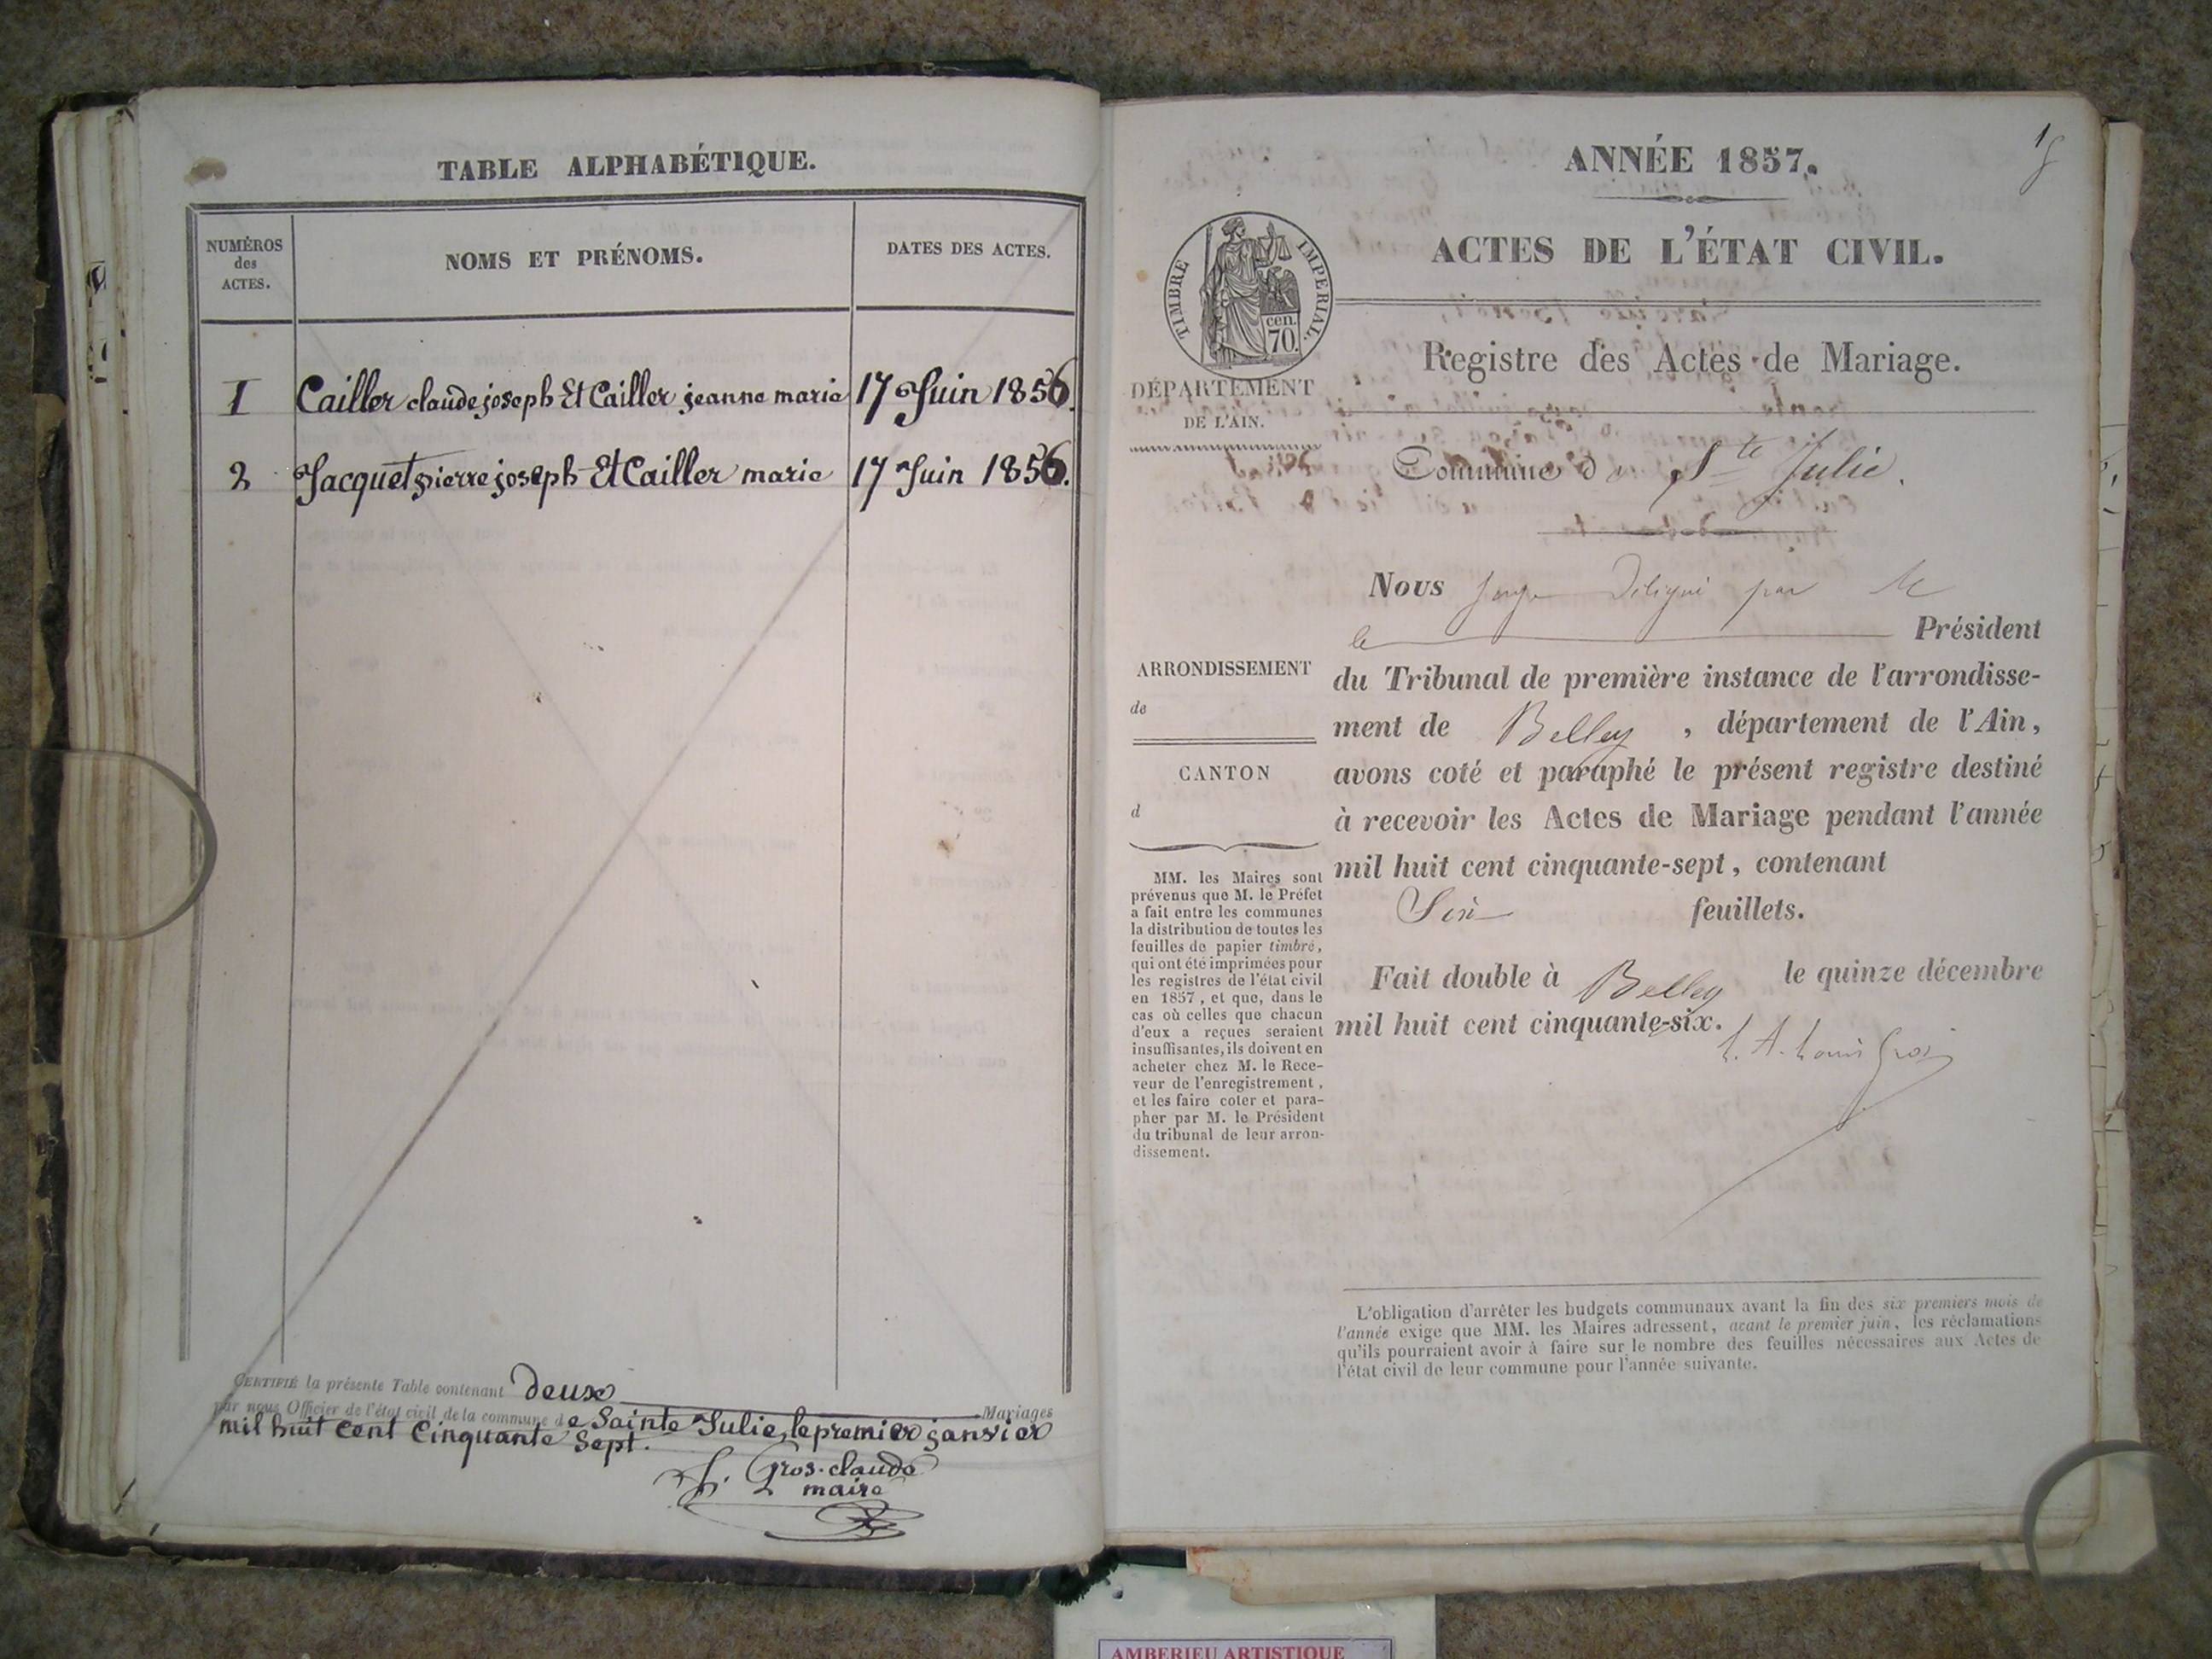 TABLE ALPHABÉTIQUE.
NUMÉROS
des
ACTES.
NOMS ET PRÉNOMS.
DATES DES ACTES.
1 Cailler claude joseph Et Cailler jeanne marie 17 Juin 1856.
2 Jacquet pierre joseph Et Cailler marie 17 Juin 1856.
CERTIFIÉ la présente Table contenant deux Mariages
par nous Officier de l'état civil de la commune de Sainte Julie, le premier janvier
mil huit cent Cinquante Sept.
Gros-claude
maire
ANNÉE 1857.
ACTES DE L'ÉTAT CIVIL.
TIMBRE IMPERIAL.
cen.
70.
DÉPARTEMENT
DE L'AIN.
Registre des Actes de Mariage.
Commune d Ste Julie.
Nous Juge Délégué par
le Président
du Tribunal de première instance de l'arrondisse-
ment de Belley, département de l'Ain,
avons coté et paraphé le présent registre destiné
à recevoir les Actes de Mariage pendant l'année
mil huit cent cinquante-sept, contenant
Six feuillets.
Fait double à Belley le quinze décembre
mil huit cent cinquante-six.
ARRONDISSEMENT
de
CANTON
d
MM. les Maires sont
prévenus que M. le Préfet
a fait entre les communes
la distribution de toutes les
feuilles de papier timbré,
qui ont été imprimées pour
les registres de l'état civil
en 1857, et que, dans le
cas où celles que chacun
d'eux a reçues seraient
insuffisantes, ils doivent en
acheter chez M. le Rece-
veur de l'enregistrement,
et les faire coter et para-
pher par M. le Président
du tribunal de leur arron-
dissement.
L'obligation d'arrêter les budgets communaux avant la fin des six premiers mois de
l'année exige que MM. les Maires adressent, avant le premier juin, les réclamations
qu'ils pourraient avoir à faire sur le nombre des feuilles nécessaires aux Actes de
l'état civil de leur commune pour l'année suivante.
AMBERIEU ARTISTIQUE